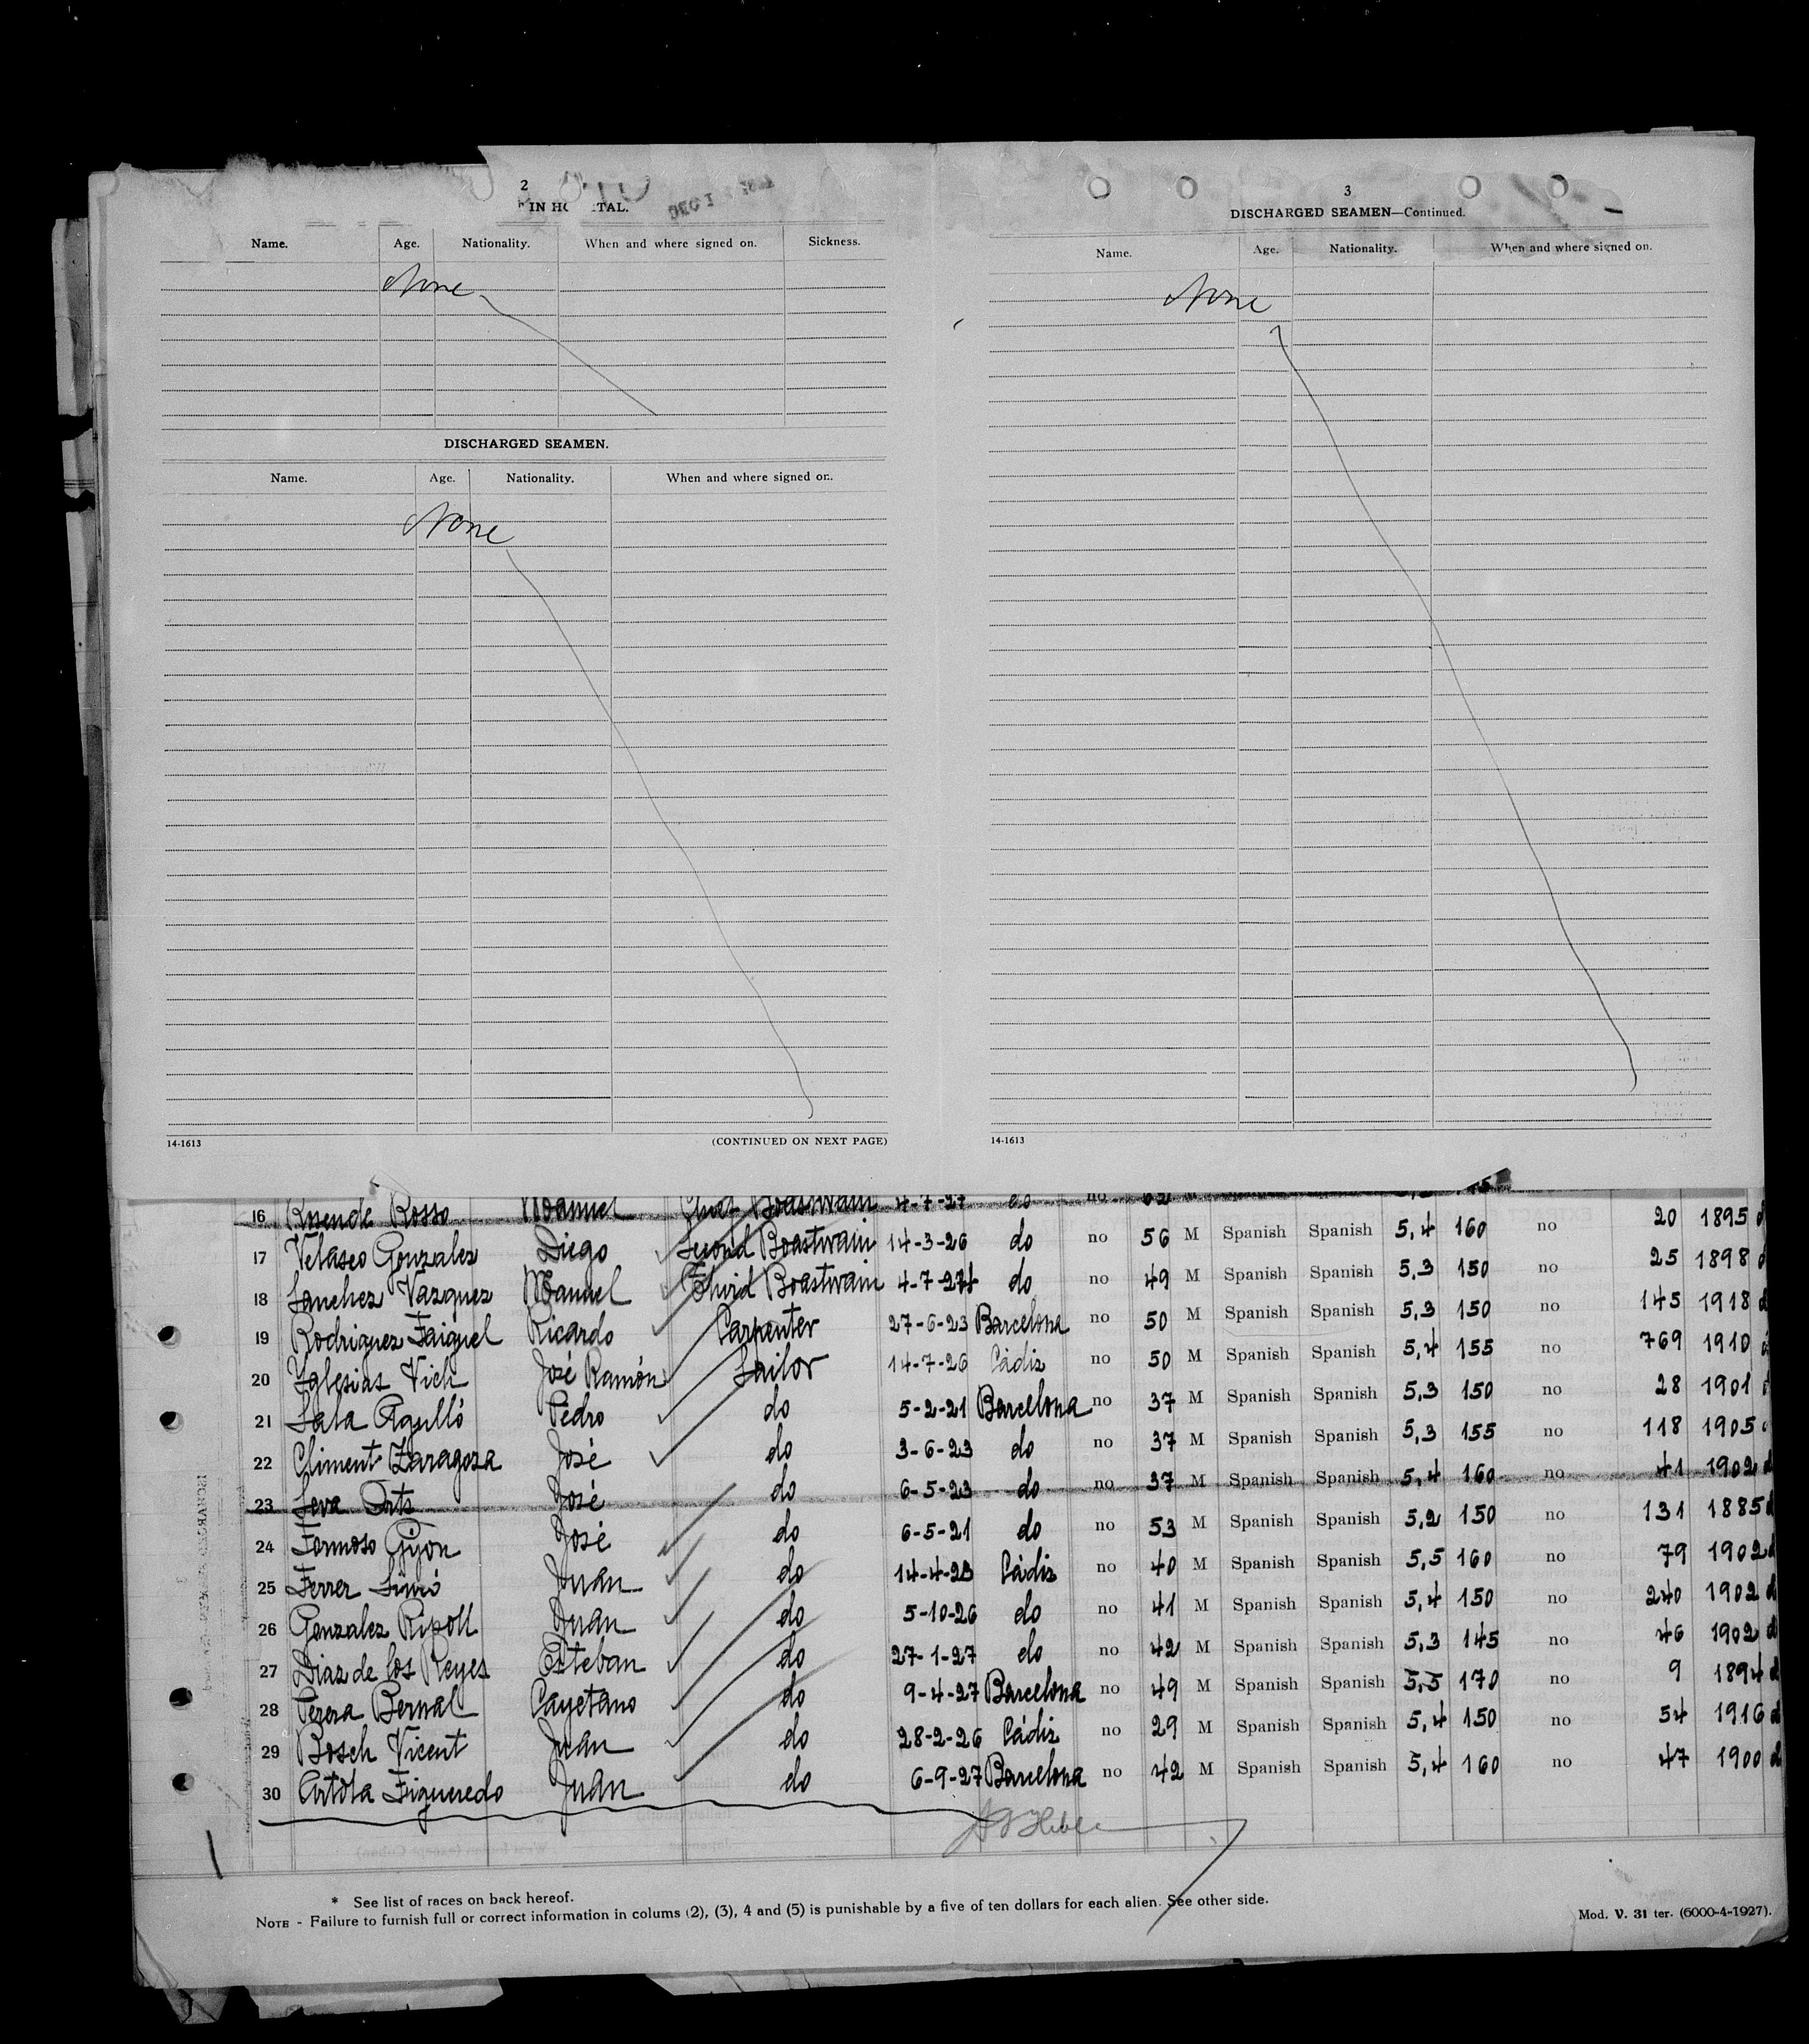 2
IN HO TAL.
Name. Age. Nationality. When and where signed on. Sickness.
None
DISCHARGED SEAMEN.
Name. Age. Nationality. When and where signed on.
None
14-1613 (CONTINUED ON NEXT PAGE)
3
DISCHARGED SEAMEN—Continued.
Name. Age. Nationality. When and where signed on.
None
14-1613
16 Rosende Rosso Manuel Chief Boastwain 4-7-27 do no
17 Velasco Gonzalez Diego Second Boastwain 14-3-26 do no 56 M Spanish Spanish 5,4 160 no 20 1895
18 Sanchez Vazquez Manuel Third Boastwain 4-7-27 do no 49 M Spanish Spanish 5,3 150 no 25 1898
19 Rodriguez Faiguel Ricardo Carpenter 27-6-23 Barcelona no 50 M Spanish Spanish 5,3 150 no 145 1918
20 Yglesias Vich José Ramón Sailor 14-7-26 Cádiz no 50 M Spanish Spanish 5,4 155 no 769 1910
21 Sala Agulló Pedro do 5-2-21 Barcelona no 37 M Spanish Spanish 5,3 150 no 28 1901
22 Climent Zaragoza José do 3-6-23 do no 37 M Spanish Spanish 5,3 155 no 118 1905
23 Leva Orts José do 6-5-23 do no 37 M Spanish Spanish 5,4 160 no 41 1902
24 Formoso Gijon José do 6-5-21 do no 53 M Spanish Spanish 5,2 150 no 131 1885
25 Ferrer Juan do 14-4-23 Cádiz no 40 M Spanish Spanish 5,5 160 no 79 1902
26 Gonzalez Ripoll Juan do 5-10-26 do no 41 M Spanish Spanish 5,4 150 no 240 1902
27 Diaz de los Reyes Esteban do 27-1-27 do no 42 M Spanish Spanish 5,3 145 no 46 1902
28 Perera Bernal Cayetano do 9-4-27 Barcelona no 49 M Spanish Spanish 5,5 170 no 9 1894
29 Bosch Vicent Juan do 28-2-26 Cádiz no 29 M Spanish Spanish 5,4 150 no 54 1916
30 Artola Figueredo Juan do 6-9-27 Barcelona no 42 M Spanish Spanish 5,4 160 no 47 1900
* See list of races on back hereof.
NOTE - Failure to furnish full or correct information in colums (2), (3), 4 and (5) is punishable by a five of ten dollars for each alien. See other side.
Mod. V. 31 ter. (6000-4-1927).